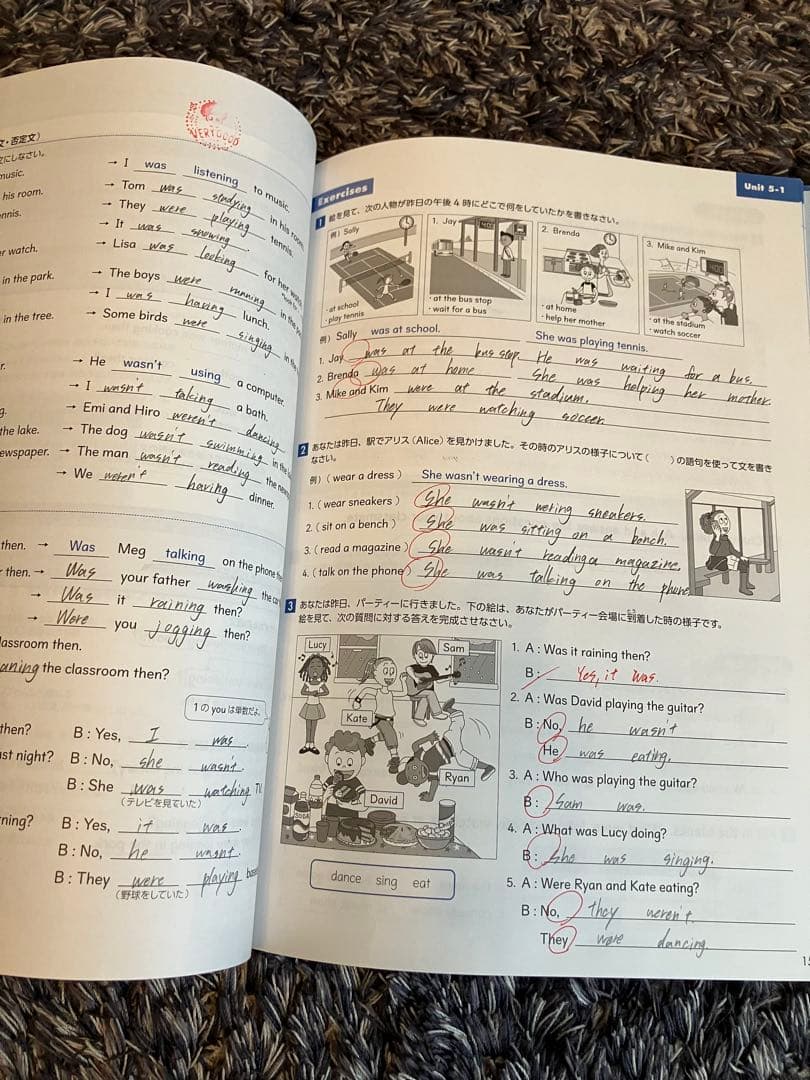 VERY GOOD
文・否定文）
文にしなさい。
music. → I was listening to music.
his room. → Tom was studying in his room.
ennis. → They were playing tennis.
→ It was snowing.
er watch. → Lisa was looking for her watch.
in the park. → The boys were running in the
→ I was having lunch.
in the tree. → Some birds were singing in the
r. → He wasn't using a computer.
→ I wasn't taking a bath.
g. → Emi and Hiro weren't dancing.
the lake. → The dog wasn't swimming in the
ewspaper. → The man wasn't reading the
→ We weren't having dinner.
then. → Was Meg talking on the phone
r then. → Was your father washing the
→ Was it raining then?
→ Were you jogging then?
lassroom then.
aning the classroom then?
1のyouは単数だよ。
then? B : Yes, I was.
ast night? B : No, she wasn't.
B : She was watching TV.
（テレビを見ていた）
rning? B : Yes, it was.
B : No, he wasn't.
B : They were playing
（野球をしていた）
Unit 5-1
Exercises
1 絵を見て、次の人物が昨日の午後4時にどこで何をしていたかを書きなさい。
例）Sally
・at school
・play tennis
1. Jay
・at the bus stop
・wait for a bus
2. Brenda
・at home
・help her mother
3. Mike and Kim
・at the stadium
・watch soccer
例）Sally was at school. She was playing tennis.
1. Jay was at the bus stop. He was waiting for a bus.
2. Brenda was at home. She was helping her mother.
3. Mike and Kim were at the stadium.
They were watching soccer.
2 あなたは昨日、駅でアリス（Alice）を見かけました。その時のアリスの様子について（　）の語句を使って文を書き
なさい。
例）（wear a dress） She wasn't wearing a dress.
1.（wear sneakers） She wasn't wering sneakers.
2.（sit on a bench） She was sitting on a bench.
3.（read a magazine） She wasn't reading a magazine.
4.（talk on the phone） She was talking on the phone.
3 あなたは昨日、パーティーに行きました。下の絵は、あなたがパーティー会場に到着した時の様子です。
絵を見て、次の質問に対する答えを完成させなさい。
Lucy
Sam
Kate
Ryan
David
SODA
dance sing eat
1. A : Was it raining then?
B : Yes, it was.
2. A : Was David playing the guitar?
B : No, he wasn't
He was eating.
3. A : Who was playing the guitar?
B : Sam was.
4. A : What was Lucy doing?
B : She was singing.
5. A : Were Ryan and Kate eating?
B : No, they weren't.
They were dancing